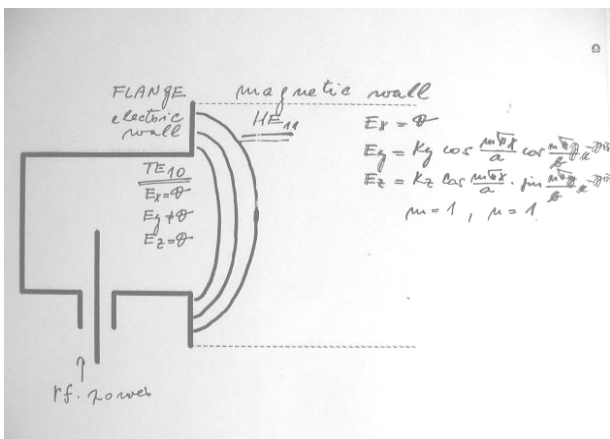 FLANGE magnetic wall
electric
wall
HE₁₁
TE₁₀
Ex = 0
Ey ≠ 0
Ez = 0
Ex = 0
Ey = Ky cos mπx/a cos nπy/b
Ez = Kz cos mπx/a · sin nπy/b
m = 1 , n = 1
rf. power